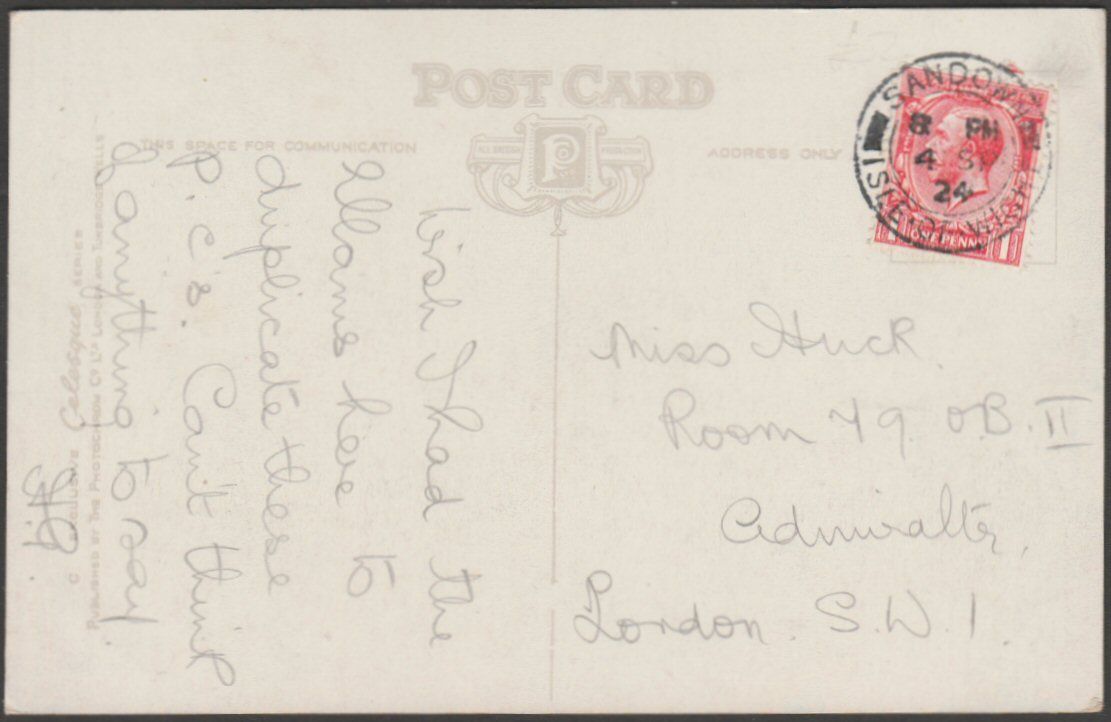 POST CARD
THIS SPACE FOR COMMUNICATION
ALL BRITISH
P
PRODUCTION
ADDRESS ONLY
SANDOWN
8 PM
4 SP
24
ISLE OF WIGHT
ONE PENNY
Wish I had the
here to
duplicate these
P.C's. Can't think
of anything to say.
Miss Huck.
Room 49. O.B. II
Admiralty,
London. S.W.1.
Celesque SERIES
PUBLISHED BY THE PHOTOCHROM CO LTD LONDON AND TUNBRIDGE WELLS